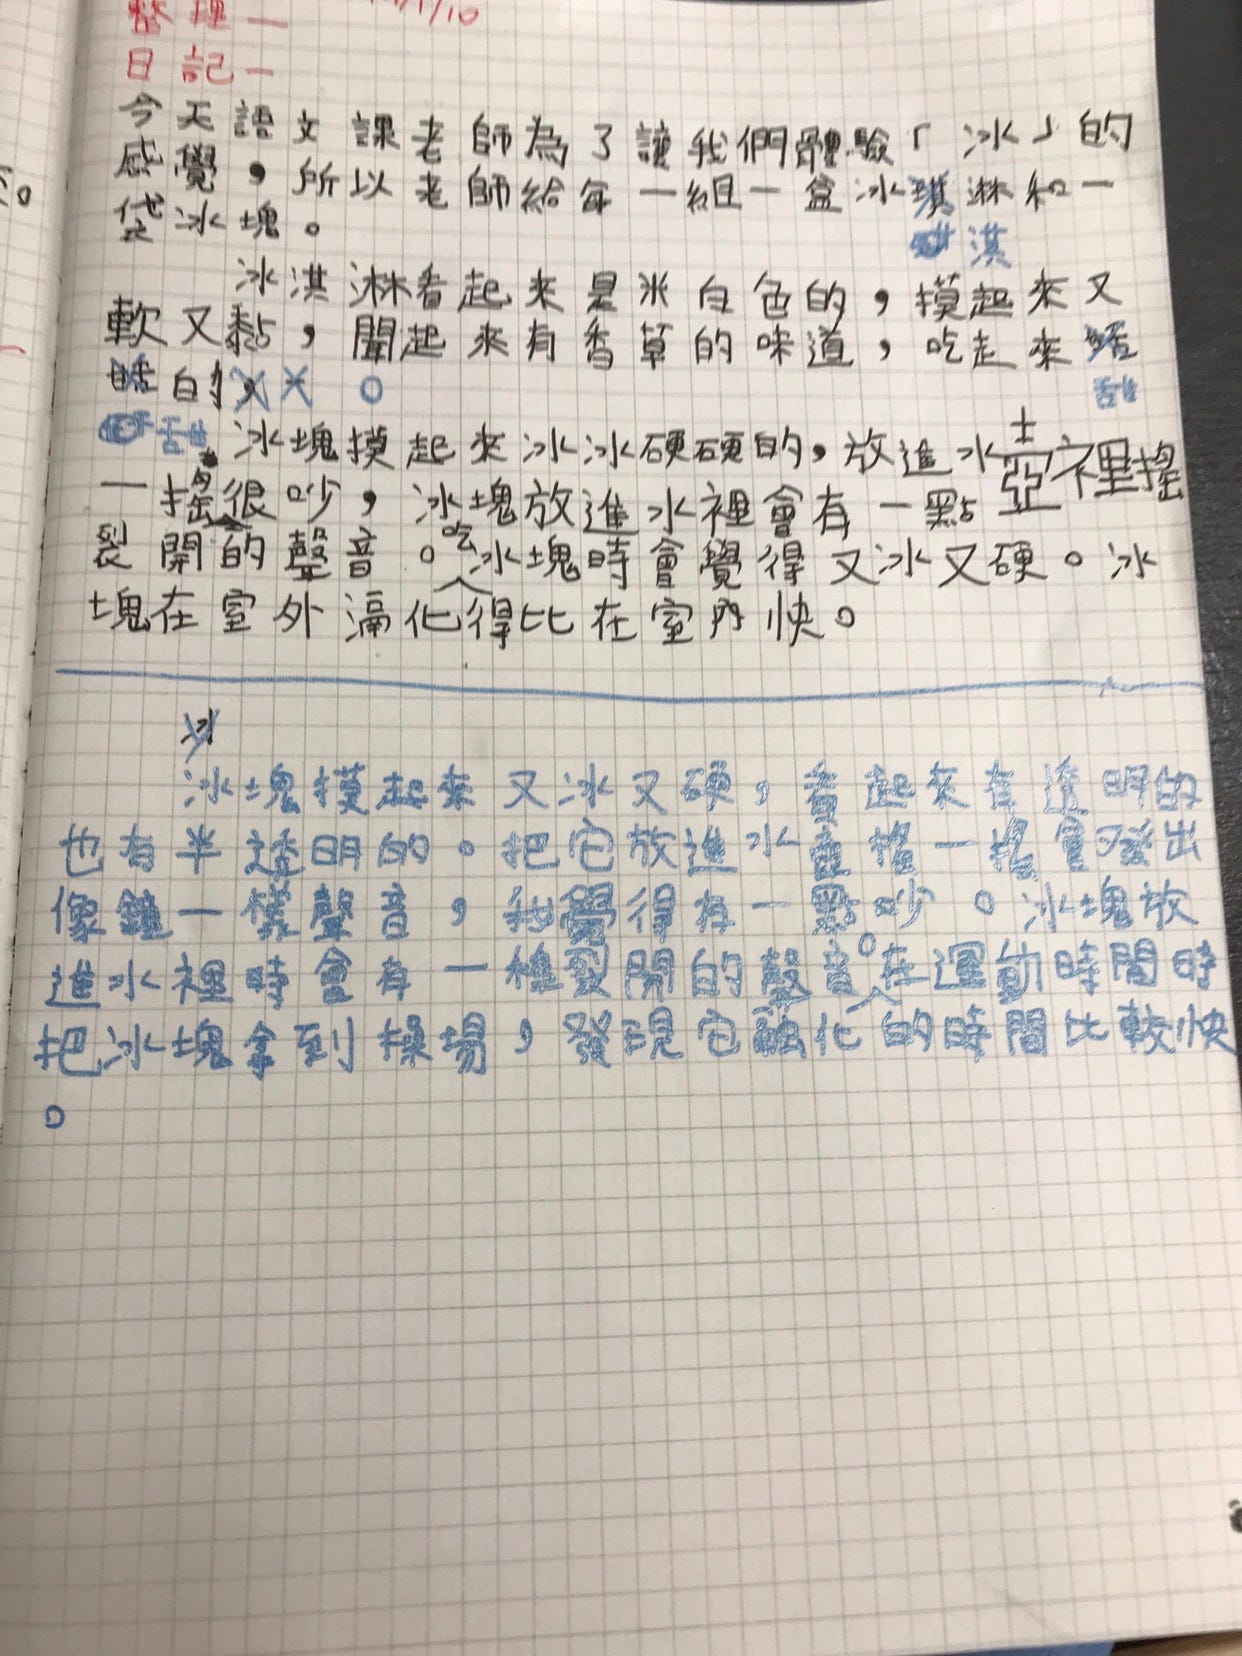 整理一 1/10
日記一
今天語文課老師為了讓我們體驗「冰」的
感覺,所以老師給每一組一盒冰琪淋和一
袋冰塊。
淇
冰淇淋看起來是米白色的,摸起來又
軟又黏,聞起來有香草的味道,吃起來
甜
的。
甜
冰塊摸起來冰冰硬硬的,放進水壺裡搖
一搖很吵,冰塊放進水裡會有一點
裂開的聲音。吃冰塊時會覺得又冰又硬。冰
塊在室外融化得比在室內快。
冰塊摸起來又冰又硬,看起來有透明的
也有半透明的。把它放進水壺搖一搖會發出
像鐘一樣聲音,我覺得有一點吵。冰塊放
進水裡時會有一種裂開的聲音。在運動時間時
把冰塊拿到操場,發現它融化的時間比較快
。